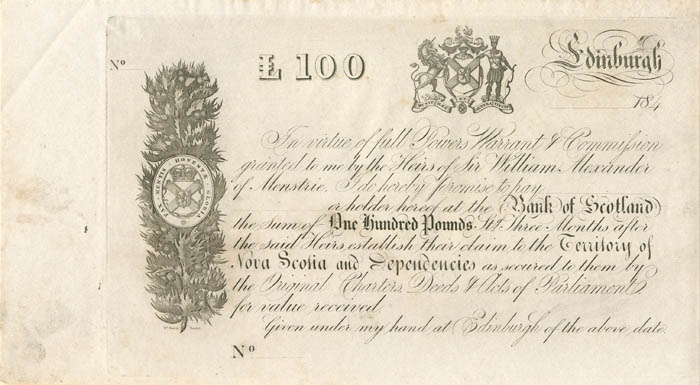 Nº
£ 100
Edinburgh
184
In virtue of full Powers Warrant & Commission
granted to me by the Heirs of Sir William Alexander
of Menstrie. I do hereby promise to pay
or holder hereof at the Bank of Scotland
the sum of One Hundred Pounds Stg Three Months after
the said Heirs establish their claim to the Territory of
Nova Scotia and Dependencies as secured to them by
the Original Charters, Deeds & Acts of Parliament
for value received.
Given under my hand at Edinburgh of the above date.
Nº